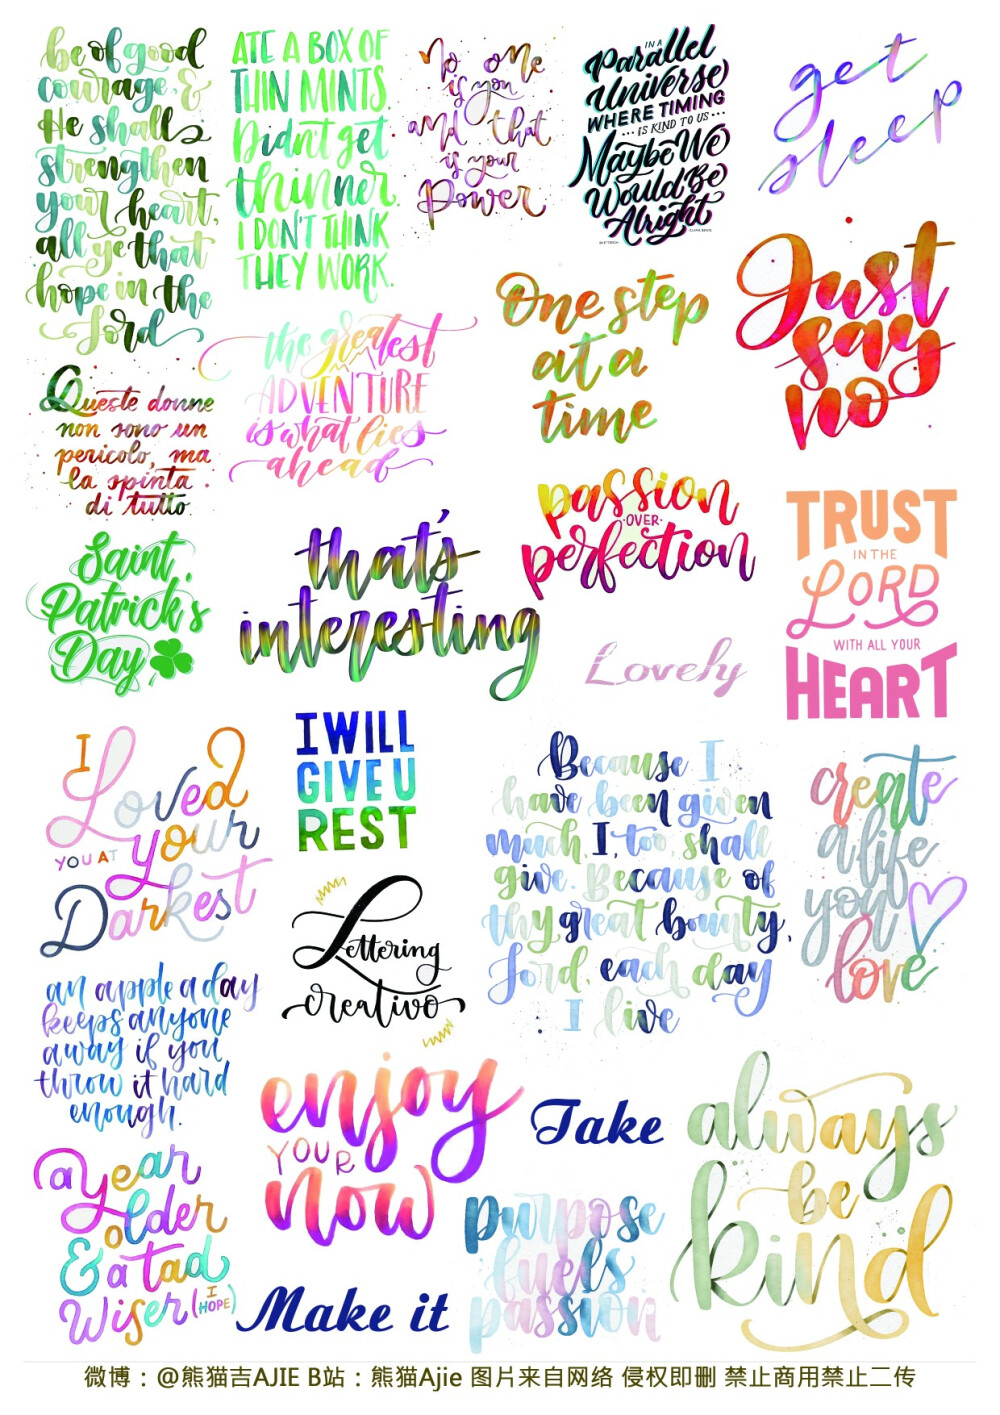 be of good
courage, &
He shall
strengthen
your heart,
all ye that
hope in the
Lord
ATE A BOX OF
THIN MINTS.
Didn't get
thinner.
I DON'T THINK
THEY WORK.
No one
is you
and that
is your
Power
IN A
Parallel
Universe
WHERE TIMING
IS KIND TO US
Maybe We
Would Be
Alright
get
sleep
Queste donne
non sono un
pericolo, ma
la spinta
di tutto
the greatest
ADVENTURE
is what lies
ahead
One step
at a
time
Just
say
no
Saint
Patrick's
Day
that's
interesting
passion
OVER
perfection
Lovely
TRUST
IN THE
LORD
WITH ALL YOUR
HEART
I
Loved
YOU AT your
Darkest
I WILL
GIVE U
REST
Lettering
creativo
Because I
have been given
much, I, too, shall
give. Because of
thy great bounty,
Lord, each day
I live
create
a life
you
love
an apple a day
keeps anyone
away if you
throw it hard
enough.
enjoy
YOUR
now
Take
always
be
kind
a Year
older
& a tad
Wiser (I HOPE)
Make it
purpose
fuels
passion
微博：@熊猫吉AJIE B站：熊猫Ajie 图片来自网络 侵权即删 禁止商用禁止二传